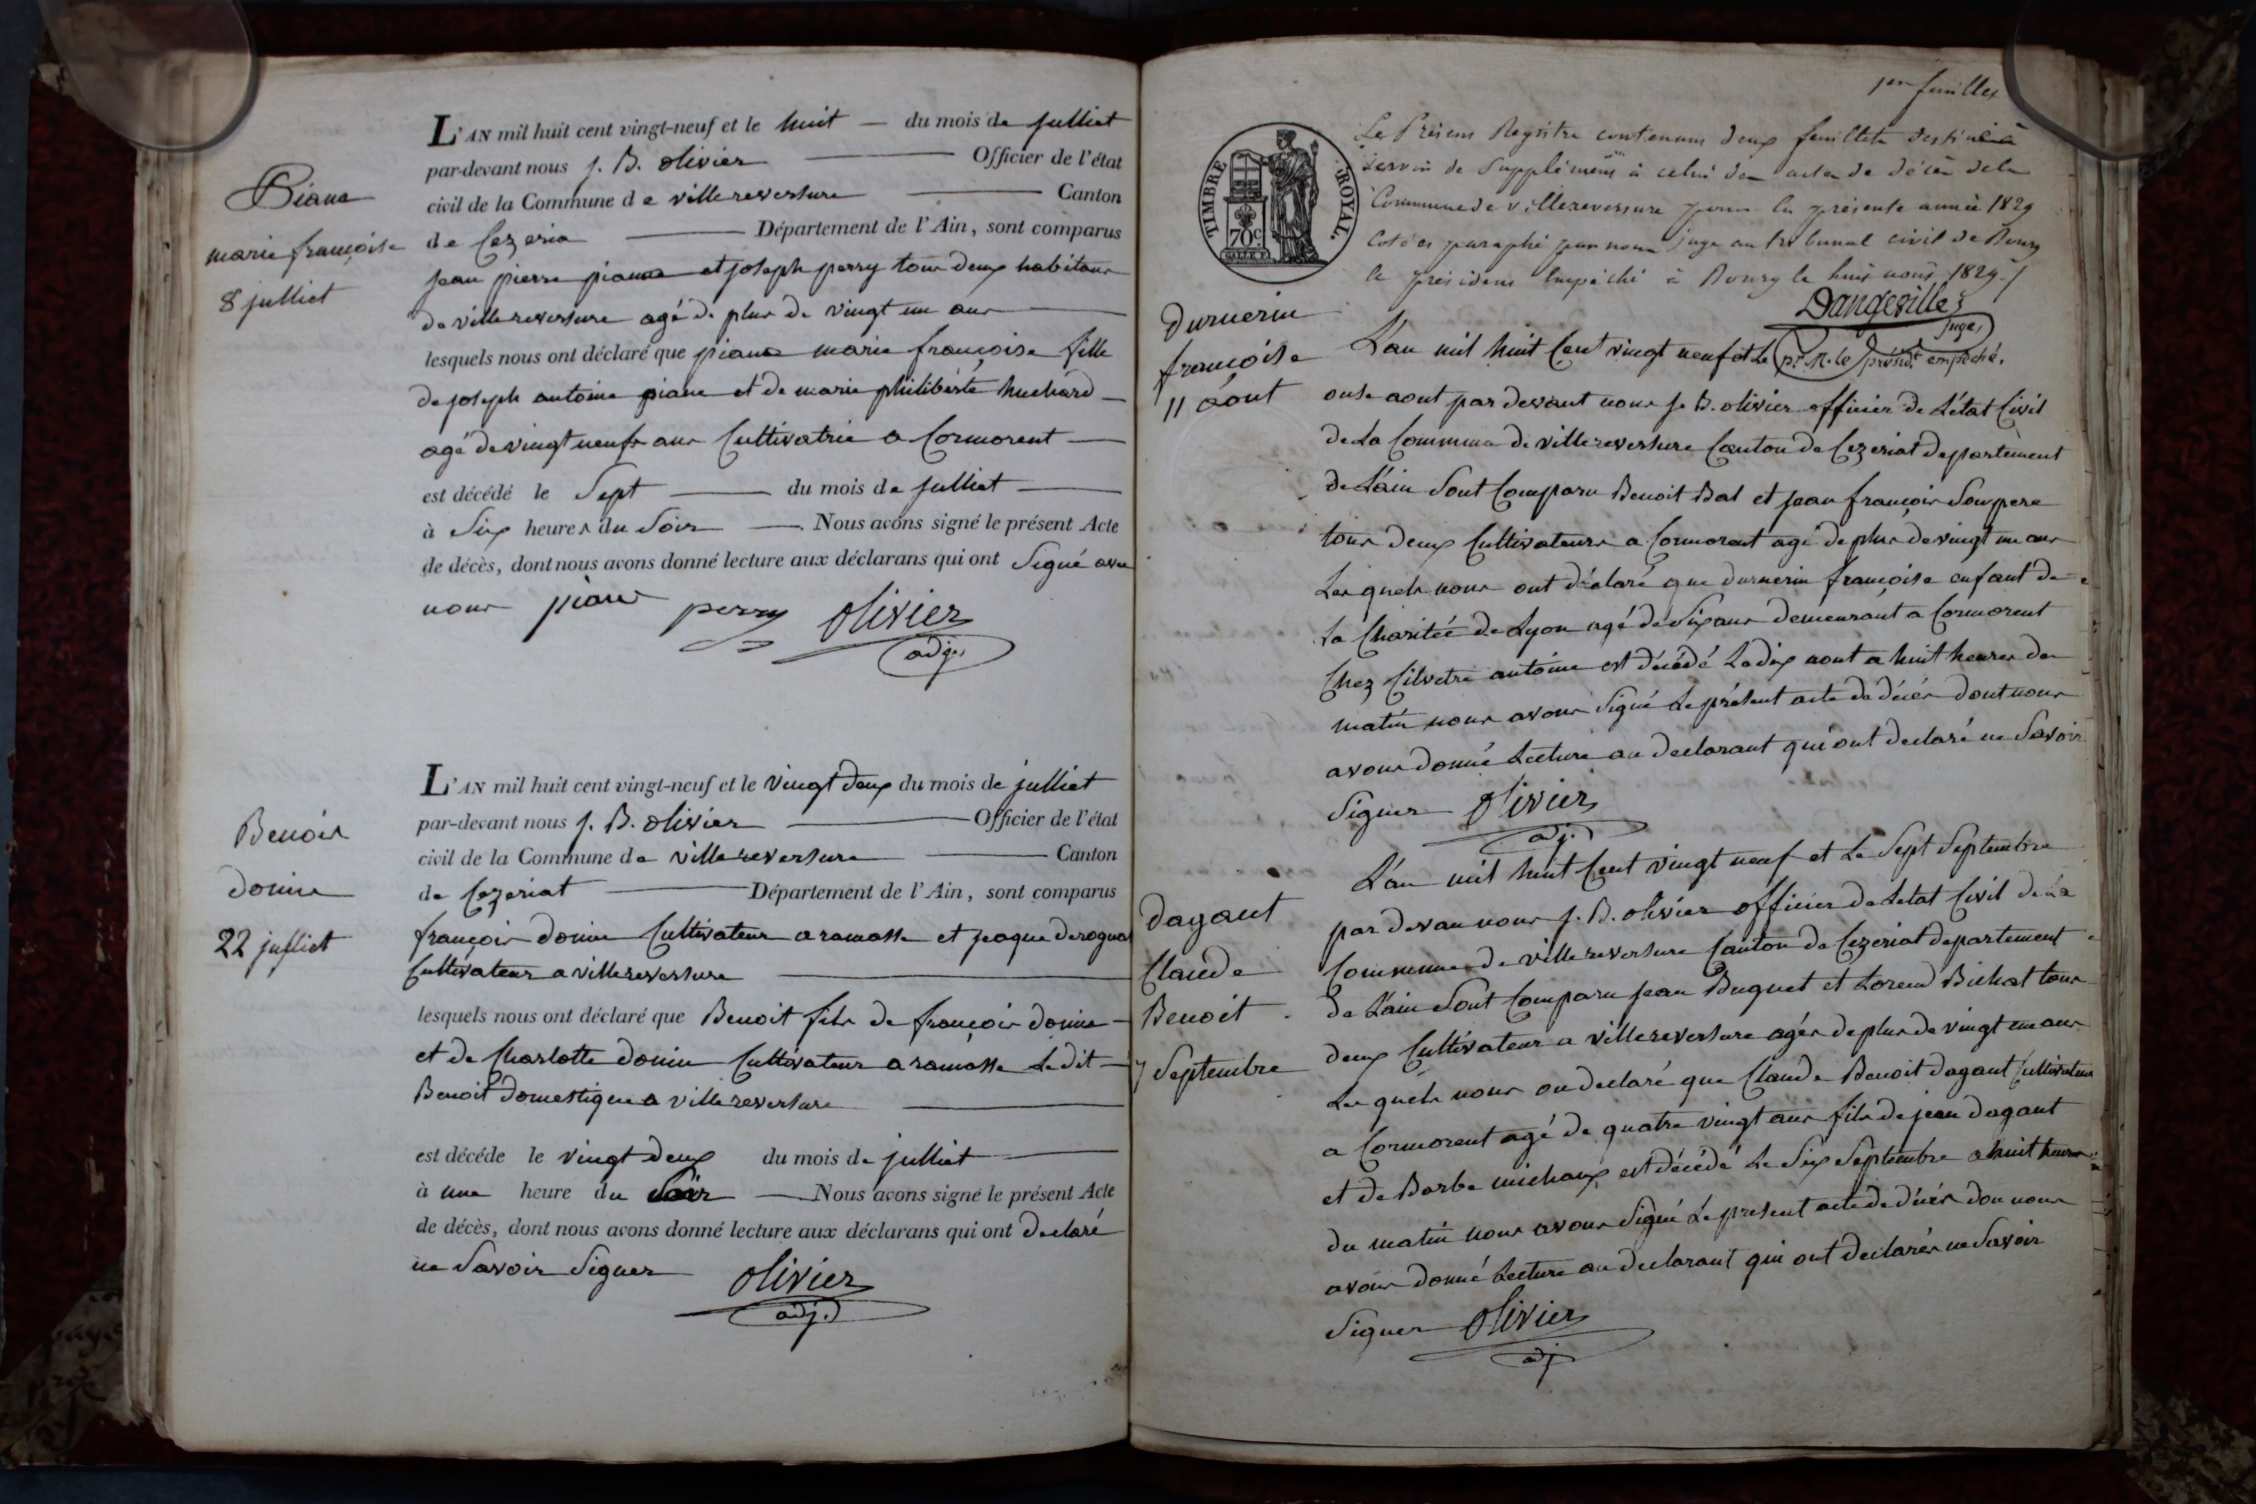 Piana
marie françoise
8 julliet
L'AN mil huit cent vingt-neuf et le huit — du mois de julliet
par-devant nous j. B. olivier Officier de l'état
civil de la Commune de villereversure Canton
de Cezeria Département de l'Ain, sont comparus
jean pierre piana et joseph perry tous deux habitans
de villereversure agé de plus de vingt un ans
lesquels nous ont déclaré que piana marie françoise fille
de joseph antoine piana et de marie philibérte huchard
agé de vingt neufs ans Cultivatrice a Cormorent
est décédé le Sept du mois de julliet
à Six heures du Soir Nous avons signé le présent Acte
de décès, dont nous avons donné lecture aux déclarans qui ont Signé avec
nous piana perry olivier
adj.
Benoit
donin
22 julliet
L'AN mil huit cent vingt-neuf et le vingt deux du mois de julliet
par-devant nous j. B. olivier Officier de l'état
civil de la Commune de villereversure Canton
de Cezeriat Département de l'Ain, sont comparus
françois donin Cultivateur a ramasse et jeaque
Cultivateur a villereversure
lesquels nous ont déclaré que Benoit fils de françois donin
et de Charlotte donin Cultivateur a ramasse Ledit
Benoit domestique a villereversure
est décéde le vingt deux du mois de julliet
à une heure du Soir Nous avons signé le présent Acte
de décès, dont nous avons donné lecture aux déclarans qui ont declaré
ne Savoir Signer olivier
adj.
1er feuillet
TIMBRE ROYAL.
70c
Le Présent Registre contenant deux feuillets destiné à
servir de Supplément à celui des actes de décès de la
Commune de villereversure pour la présente année 1829
Coté et paraphé par nous juge au tribunal civil de Bourg
le président empêché à Bourg le huit août 1829./
Dangeville
juge,
pr. M. le présidt. empêché.
durnerin
françoise
11 aout
L'an mil huit Cent vingt neuf et le
onse aout par devant nous J. B. olivier officier de L'état Civil
de La Commune de villereversure Canton de Cezeriat departement
de L'ain Sont Comparu Benoit Bal et jean françois Soupere
tous deux Cultivateurs a Cormorent agé de plus de vingt un ans
Les quels nous ont déclaré que durnerin françoise enfant de
La Charitée de Lyon agé de Six ans demeurant a Cormorent
Chez Cilvetre antoine est décédé Le dix aout a huit heures du
matin nous avons Signé Le présent acte de décés dont nous
avons donné Lecture au declarant qui ont declaré ne Savoir
Signer olivier
adj.
dagaut
Claude
Benoit
7 Septembre
L'an mil huit Cent vingt neuf et Le Sept Septembre
par devan nous j. B. olivier officier de Letat Civil de La
Commune de villereversure Canton de Cezeriat departement
de L'ain Sont Comparu jean Buguet et Lorend Bichat tous
deux Cultivateur a villereversure agés de plus de vingt un ans
Les quels nous on declaré que Claude Benoit dagaut Cultivateur
a Cormorent agé de quatre vingt ans fils de jean dagaut
et de Barbe michaux est décédé Le Six Septembre a huit heures
du matin nous avons Signé Le present acte de décés don nous
avons donné Lecture au declarant qui ont declarés ne Savoir
Signer olivier
adj